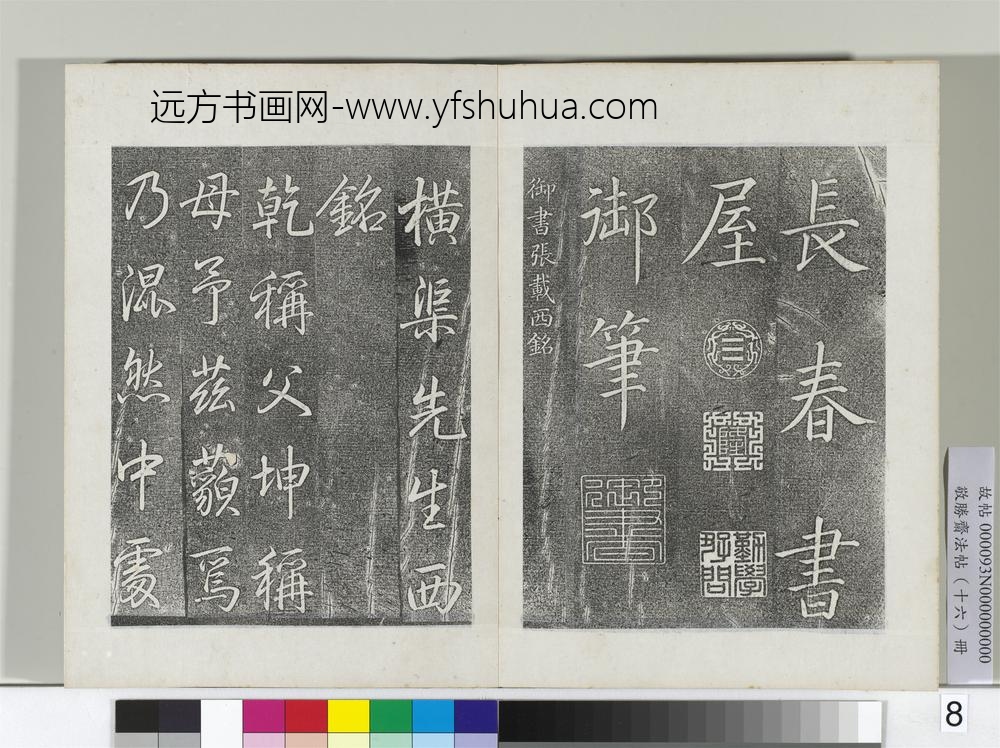 远方书画网-www.yfshuhua.com
長春書
屋
御筆
御書張載西銘
橫渠先生西
銘
乾稱父坤稱
母予茲藐焉
乃混然中處
故帖 000093N000000000
敬勝齋法帖（十六）冊
8